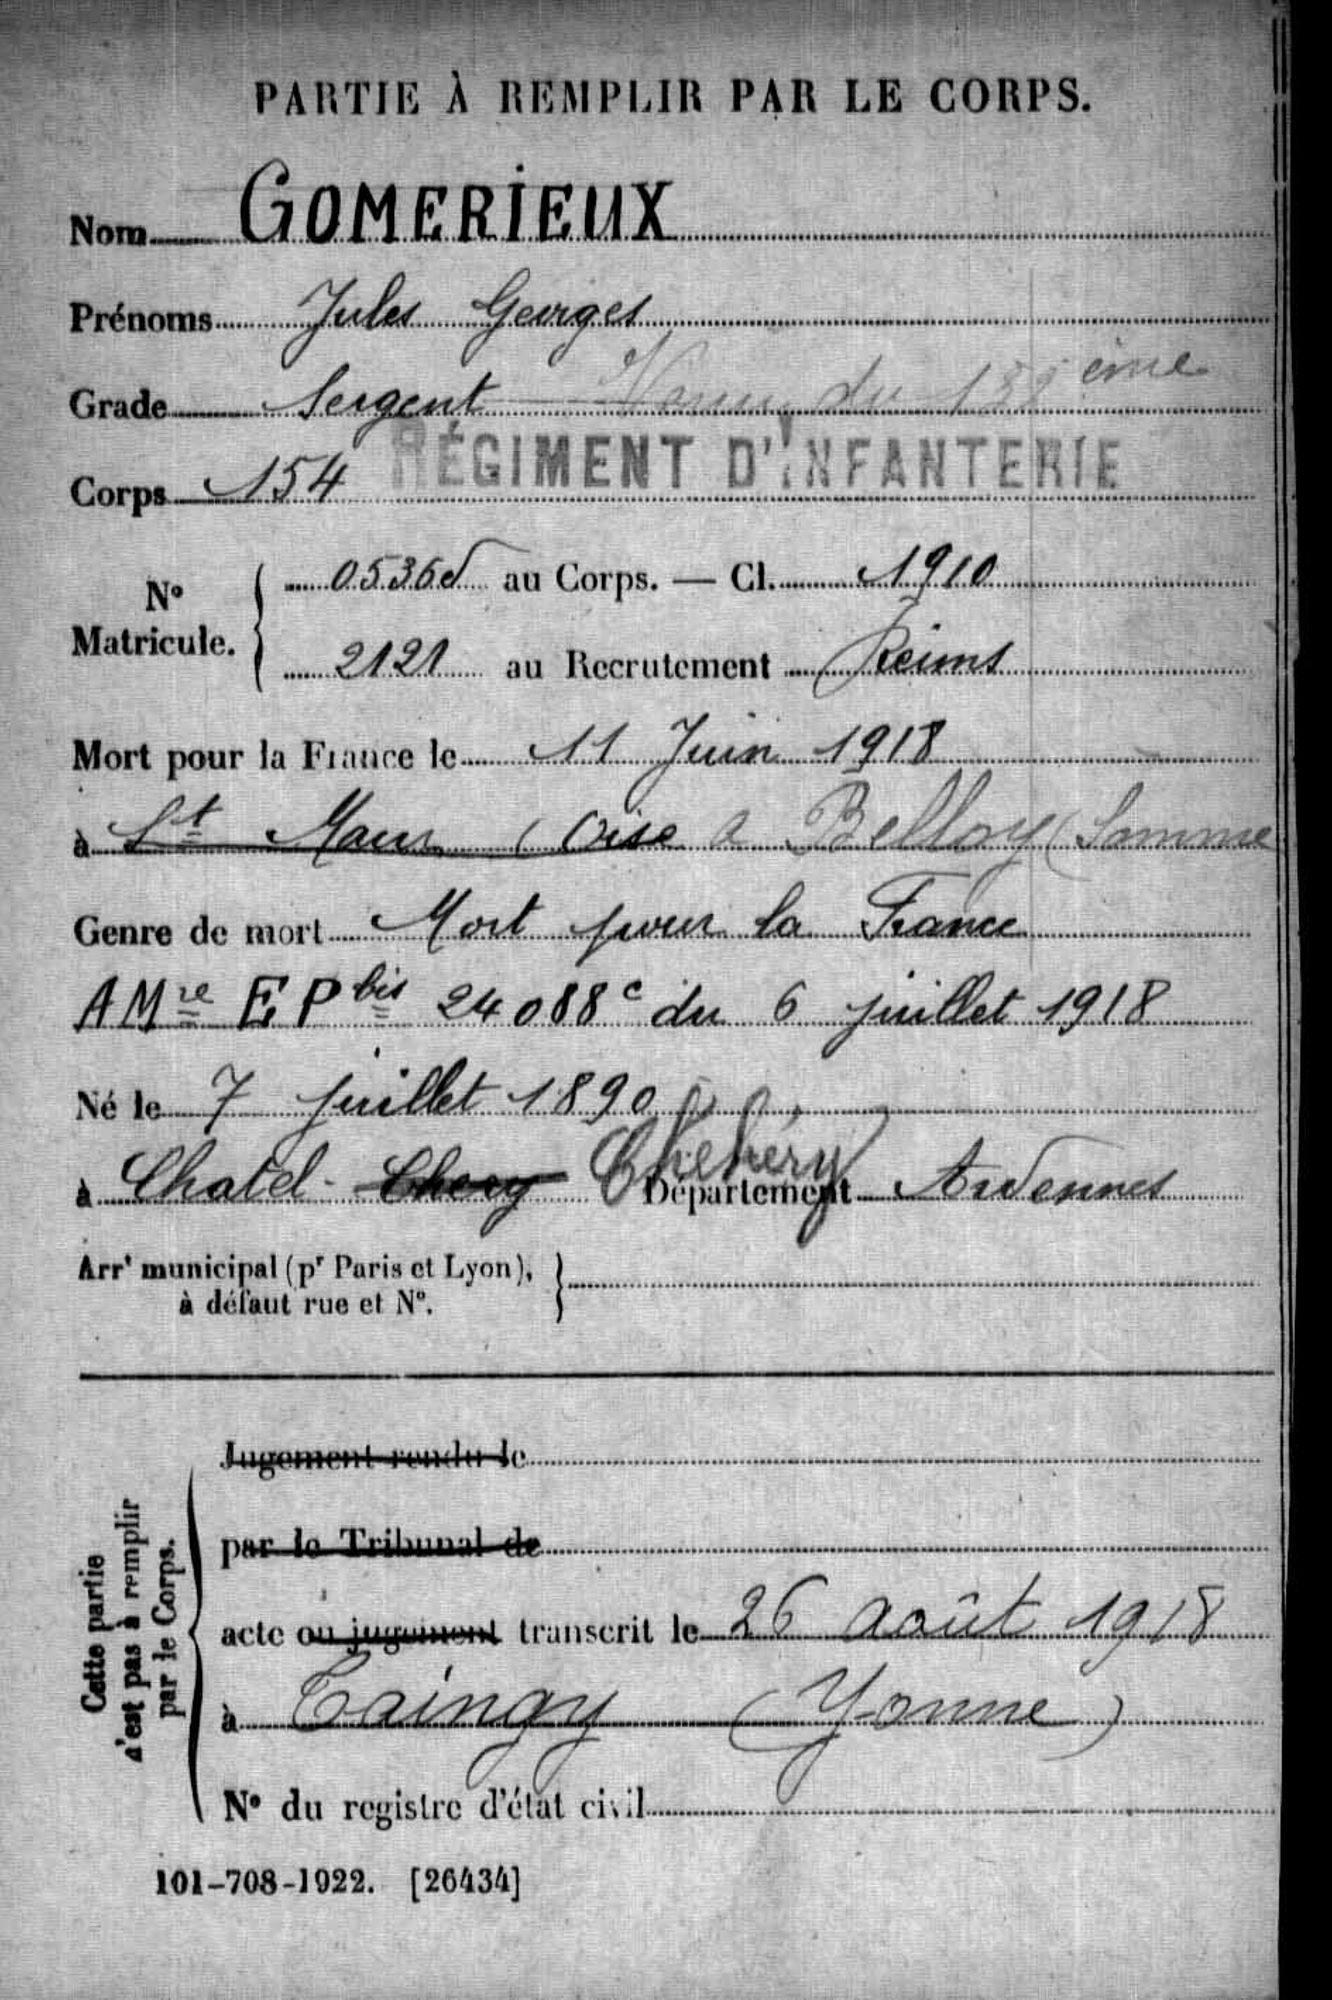 PARTIE À REMPLIR PAR LE CORPS.
Nom GOMERIEUX
Prénoms Jules Georges
Grade Sergent Venu du ème
Corps 154 RÉGIMENT D'INFANTERIE
N° Matricule. 05365 au Corps. — Cl. 1910
2121 au Recrutement Reims
Mort pour la France le 11 Juin 1918
à St Maur (Oise a Belloy (Somme
Genre de mort Mort pour la France
AMre EP bis 24088c du 6 juillet 1918
Né le 7 juillet 1890
à Chatel-Chery Chehéry Département Ardennes
Arrt municipal (pr Paris et Lyon),
à défaut rue et N°.
Cette partie
n'est pas à remplir
par le Corps.
Jugement rendu le
par le Tribunal de
acte ou jugement transcrit le 26 août 1918
à Taingy (Yonne)
N° du registre d'état civil
101-708-1922. [26434]